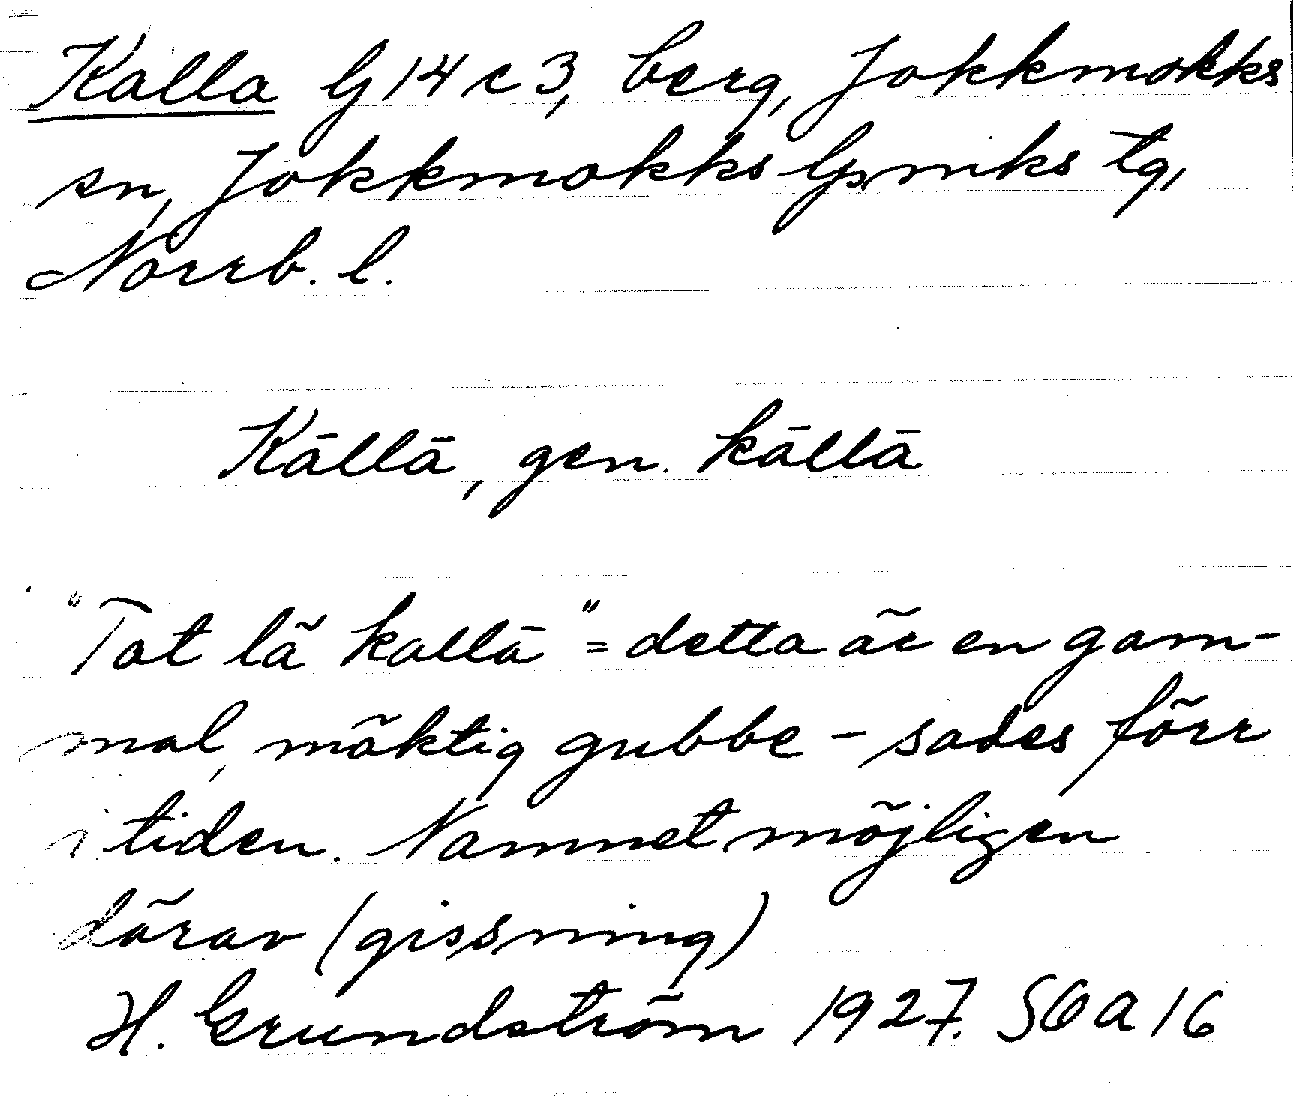 Kalla lj 14 c 3, berg, Jokkmokks
sn, Jokkmokks lpmks tg,
Norrb. l.
Kāllā, gen. kāllā
"Tat lä kallā" = detta är en gam-
mal, mäktig gubbe - sades förr
i tiden. Namnet möjligen
därav (gissning)
H. Grundström 1927. SOA 16